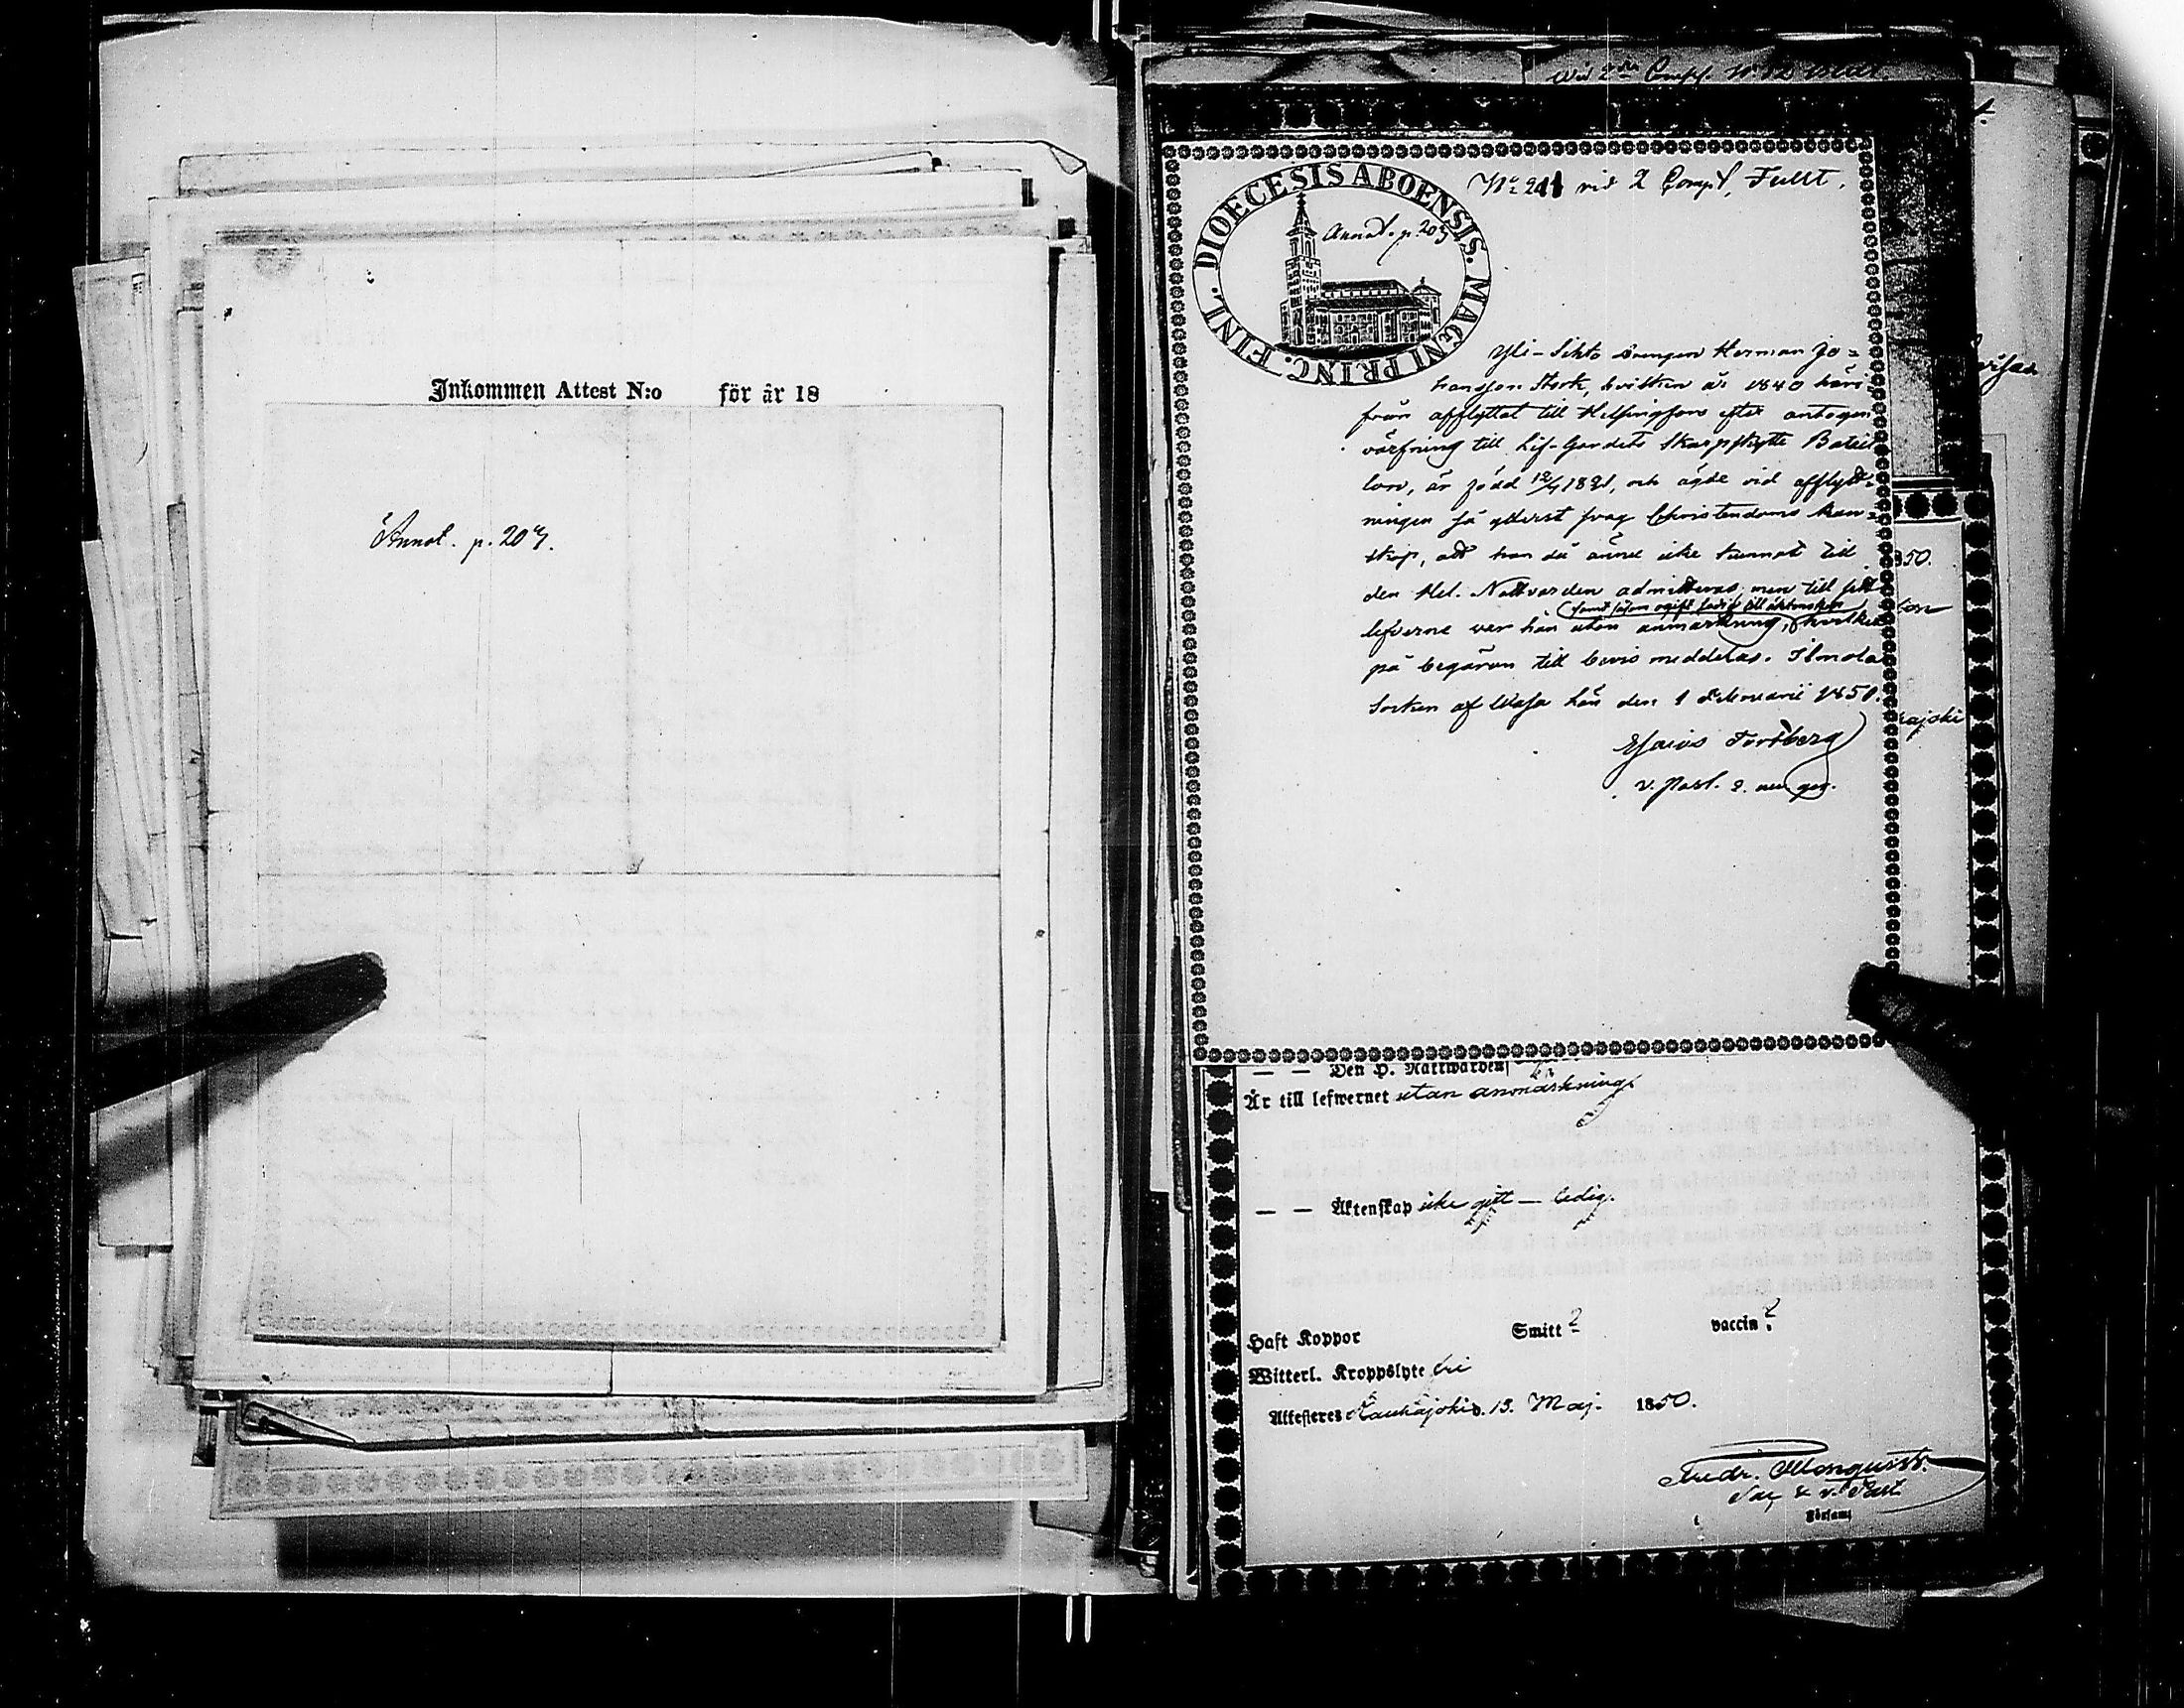 Inkommen Attest N:o för år 18
Annot. p. 207.
Wid 2dra Comp.
No 211 vid 2 Comp. Fullt.
DIOECESIS ABOENSIS. MAGNI PRINC. FINL.
Annot. p. 207
Yli-Sihto drengen Herman Jo=
hansson Stork, hvilken år 1840 häri
från afflyttat till Helsingfors efter antagen
värfning till Lif-Gardets Skarpskytte Batail
lon, är född 12/4 1821, och ägde vid afflytt=
ningen så ytterst svag Christendoms kun=
skap, att han då ännu icke kunnat till
den Hel. Nattvarden admitteras, men till sitt
(samt såsom ogift ledig till äktenskap
lefverne var han utan anmärkning, hvilket
på begäran till bevis meddelas. Ilmola
Socken af Wasa län den 1 Februarii 1850.
Esaias Tordberg
v. Past.
850.
kajoki
— — Den H. Nattwarden
Är till lefwernet utan anmärkning.
— — Äktenskap icke gift — ledig.
Haft Koppor Smitt ? vaccin ?
Witterl. Kroppslyte fri
Attesteres Kauhajoki d. 13. Maj. 1850.
Fredr.
v. Past.
Församl